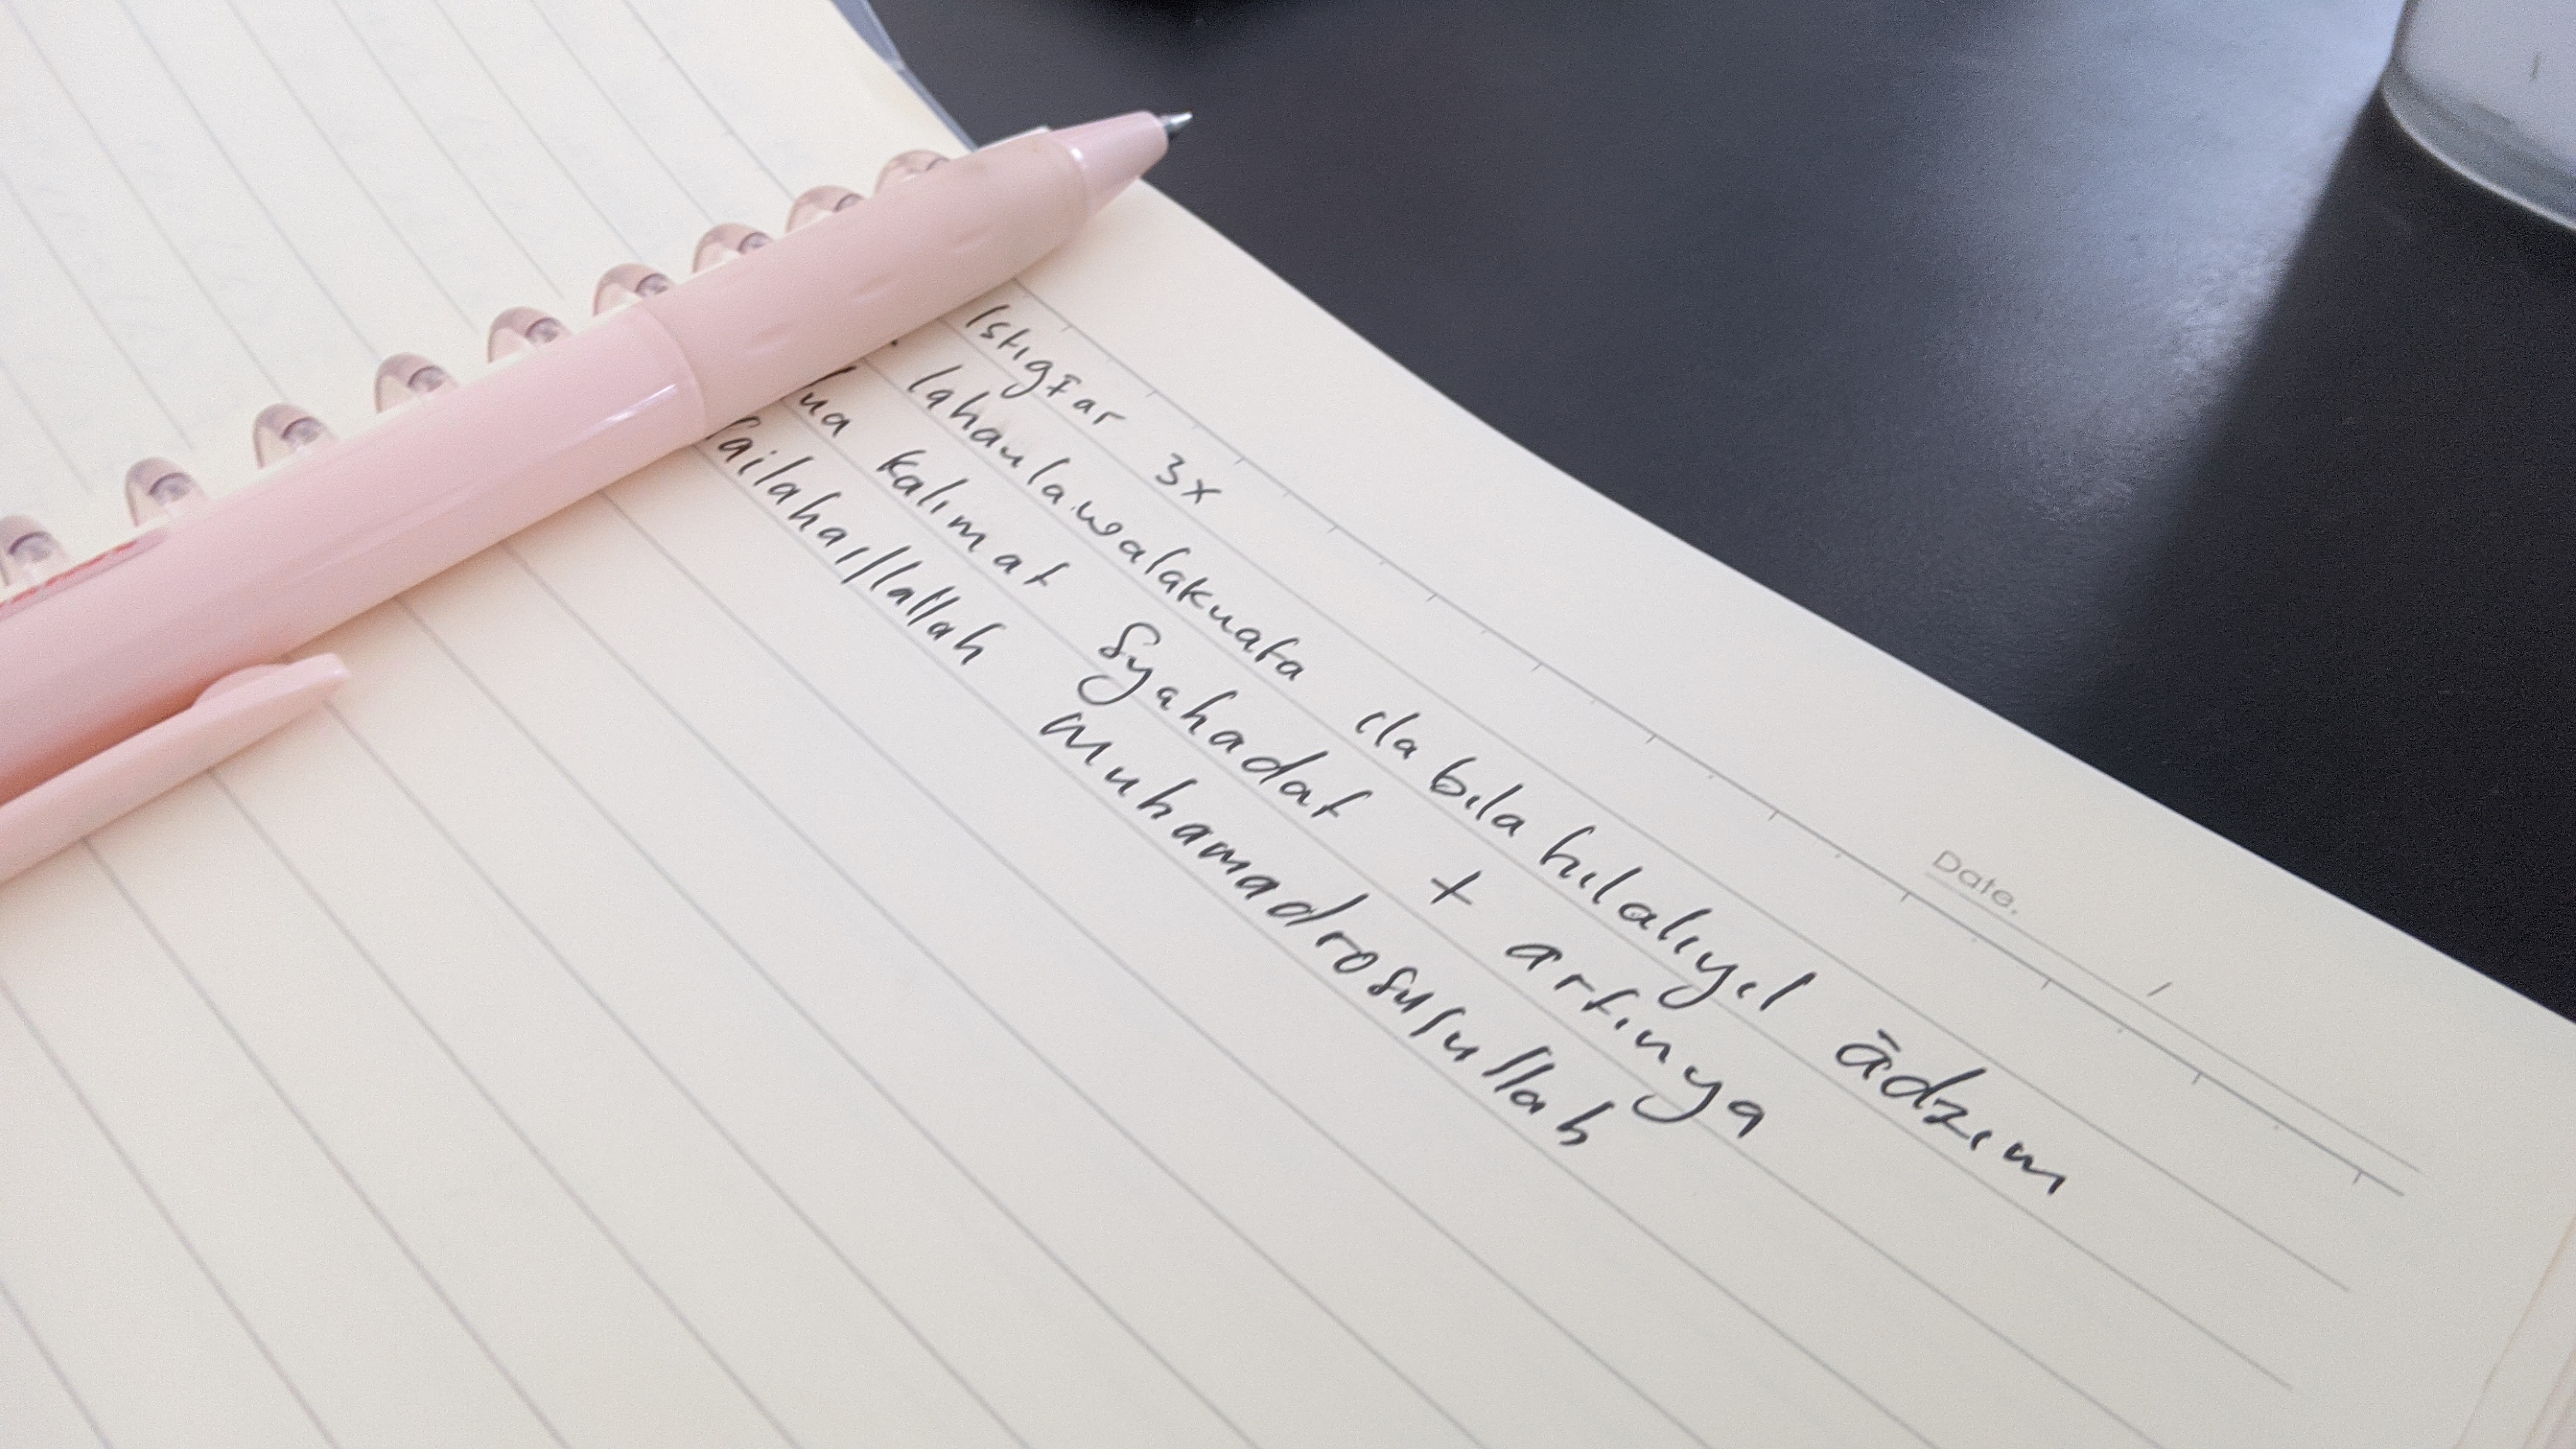 Date. /
Istigfar 3x
lahaulawalakuata ila bila hilaliyil ādzim
kalimat Syahadat + artinya
lailahaillallah Muhamadrosulullah